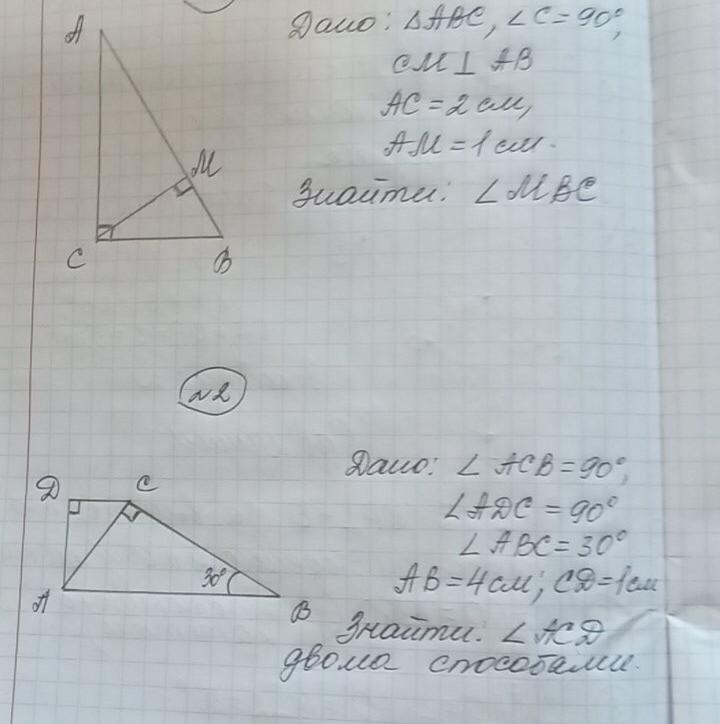 A
Дано: ΔABC, ∠C = 90°,
CM ⊥ AB
AC = 2 см,
AM = 1 см.
Знайти: ∠MBC
M
C
B
№2
Дано: ∠ACB = 90°,
∠ADC = 90°
∠ABC = 30°
AB = 4 см; CD = 1 см
Знайти: ∠ACD
двома способами.
D
C
30°
A
B